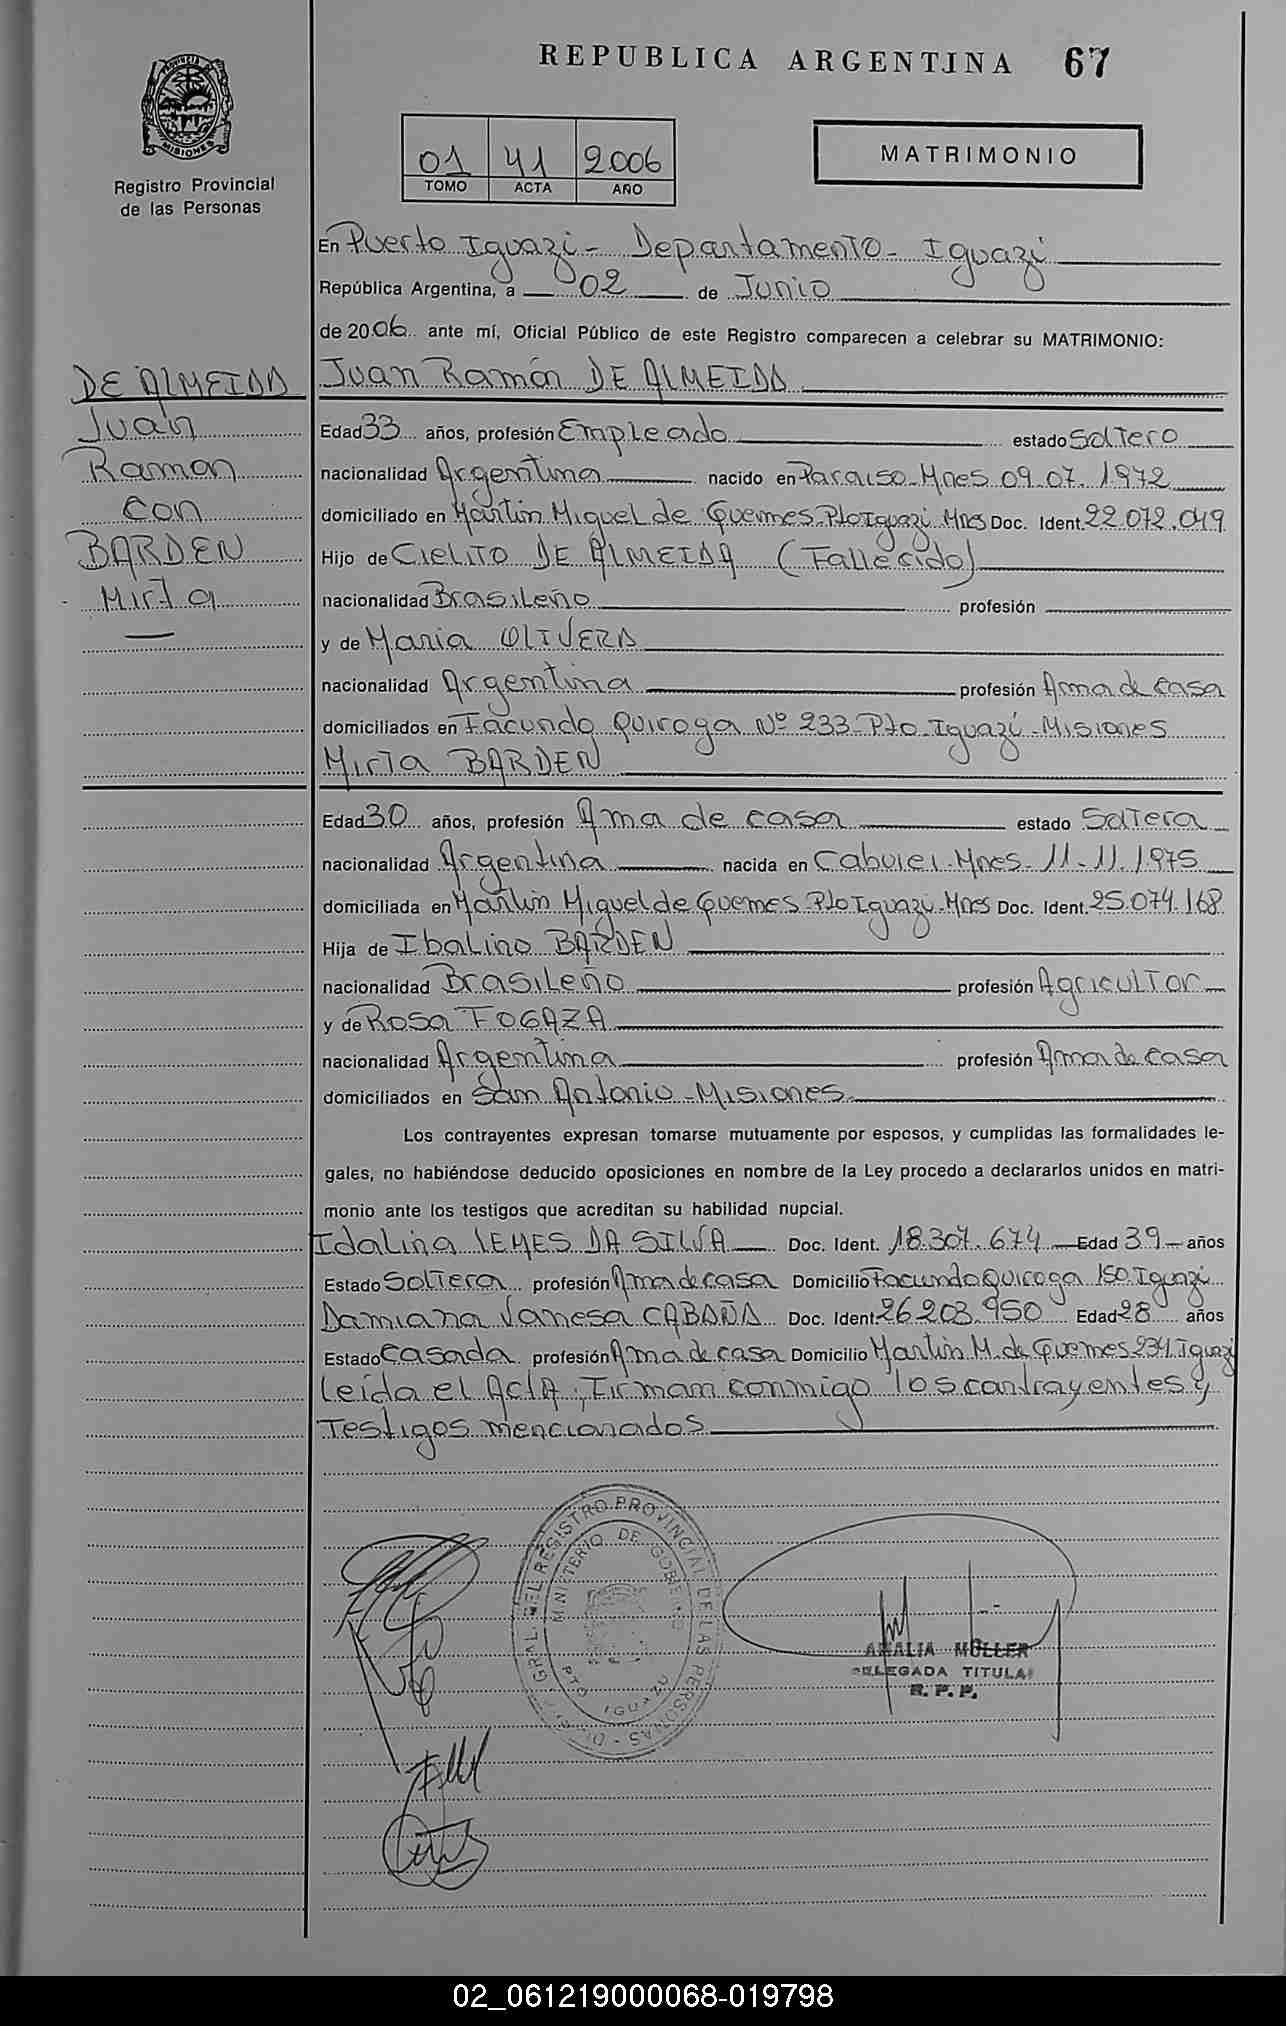 REPUBLICA ARGENTINA 67
PROVINCIA DE MISIONES
Registro Provincial
de las Personas
01 41 2006
TOMO ACTA AÑO
MATRIMONIO
En Puerto Iguazú - Departamento - Iguazú
República Argentina, a 02 de Junio
de 2006 ante mí, Oficial Público de este Registro comparecen a celebrar su MATRIMONIO:
DE ALMEIDA
Juan
Ramon
con
BARDEN
Mirta
Juan Ramón DE ALMEIDA
Edad 33 años, profesión Empleado estado Soltero
nacionalidad Argentina nacido en Paraiso-Mnes 09-07-1972
domiciliado en Martin Miguel de Guemes-Pto Iguazú-Mnes Doc. Ident. 22.072.049
Hijo de Cielito DE ALMEIDA (Fallecido)
nacionalidad Brasileño profesión
y de Maria OLIVERA
nacionalidad Argentina profesión Ama de casa
domiciliados en Facundo Quiroga Nº 233-Pto-Iguazú-Misiones
Mirta BARDEN
Edad 30 años, profesión Ama de casa estado Soltera
nacionalidad Argentina nacida en Caburei-Mnes-11-11-1975
domiciliada en Martin Miguel de Guemes Pto Iguazú-Mnes Doc. Ident. 25.074.168
Hija de Ibalino BARDEN
nacionalidad Brasileño profesión Agricultor
y de Rosa FOGAZA
nacionalidad Argentina profesión Ama de casa
domiciliados en San Antonio-Misiones
Los contrayentes expresan tomarse mutuamente por esposos, y cumplidas las formalidades le-
gales, no habiéndose deducido oposiciones en nombre de la Ley procedo a declararlos unidos en matri-
monio ante los testigos que acreditan su habilidad nupcial.
Idalina LEMES DA SILVA Doc. Ident. 18.307.674 Edad 39 años
Estado Soltera profesión Ama de casa Domicilio Facundo Quiroga 150 Iguazú
Damiana Vanesa CABAÑA Doc. Ident 26.203.950 Edad 28 años
Estado Casada profesión Ama de casa Domicilio Martin M. de Guemes 234 Iguazú
Leida el ActA, Firman conmigo los contrayentes y
Testigos mencionados
GRAL. DEL REGISTRO PROVINCIAL DE LAS PERSONAS
MINISTERIO DE GOBIERNO
PTO IGUAZU
AMALIA MÜLLER
DELEGADA TITULAR
R. P. P.
02_061219000068-019798